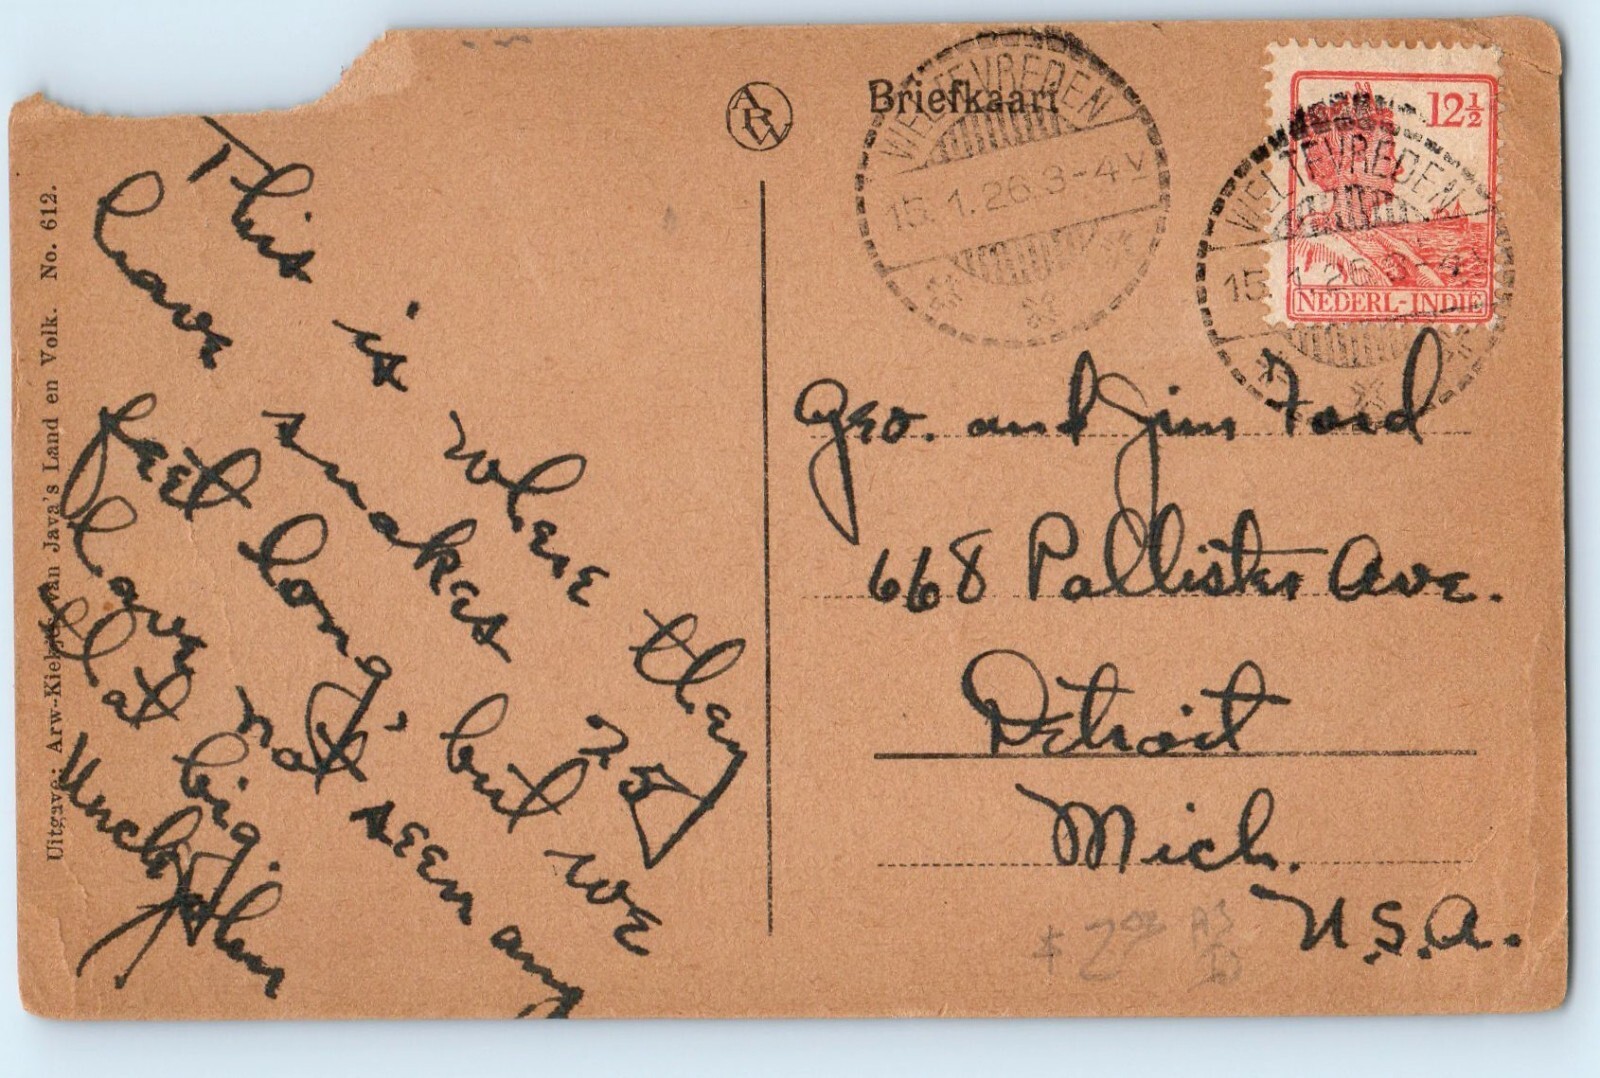 This is where they
have snakes 25
feet long, but we
have not seen any
that big.
Uncle John
Uitgave: Arw-Kiekjes van Java's Land en Volk. No. 612.
ARW
Briefkaart
WELTEVREDEN
15.1.26.3-4V
12½
NEDERL-INDIE
WELTEVREDEN
15.1.26.3-4V
Geo. and Jim Ford
668 Pallister Ave.
Detroit
Mich.
U.S.A.
$2.00 AS